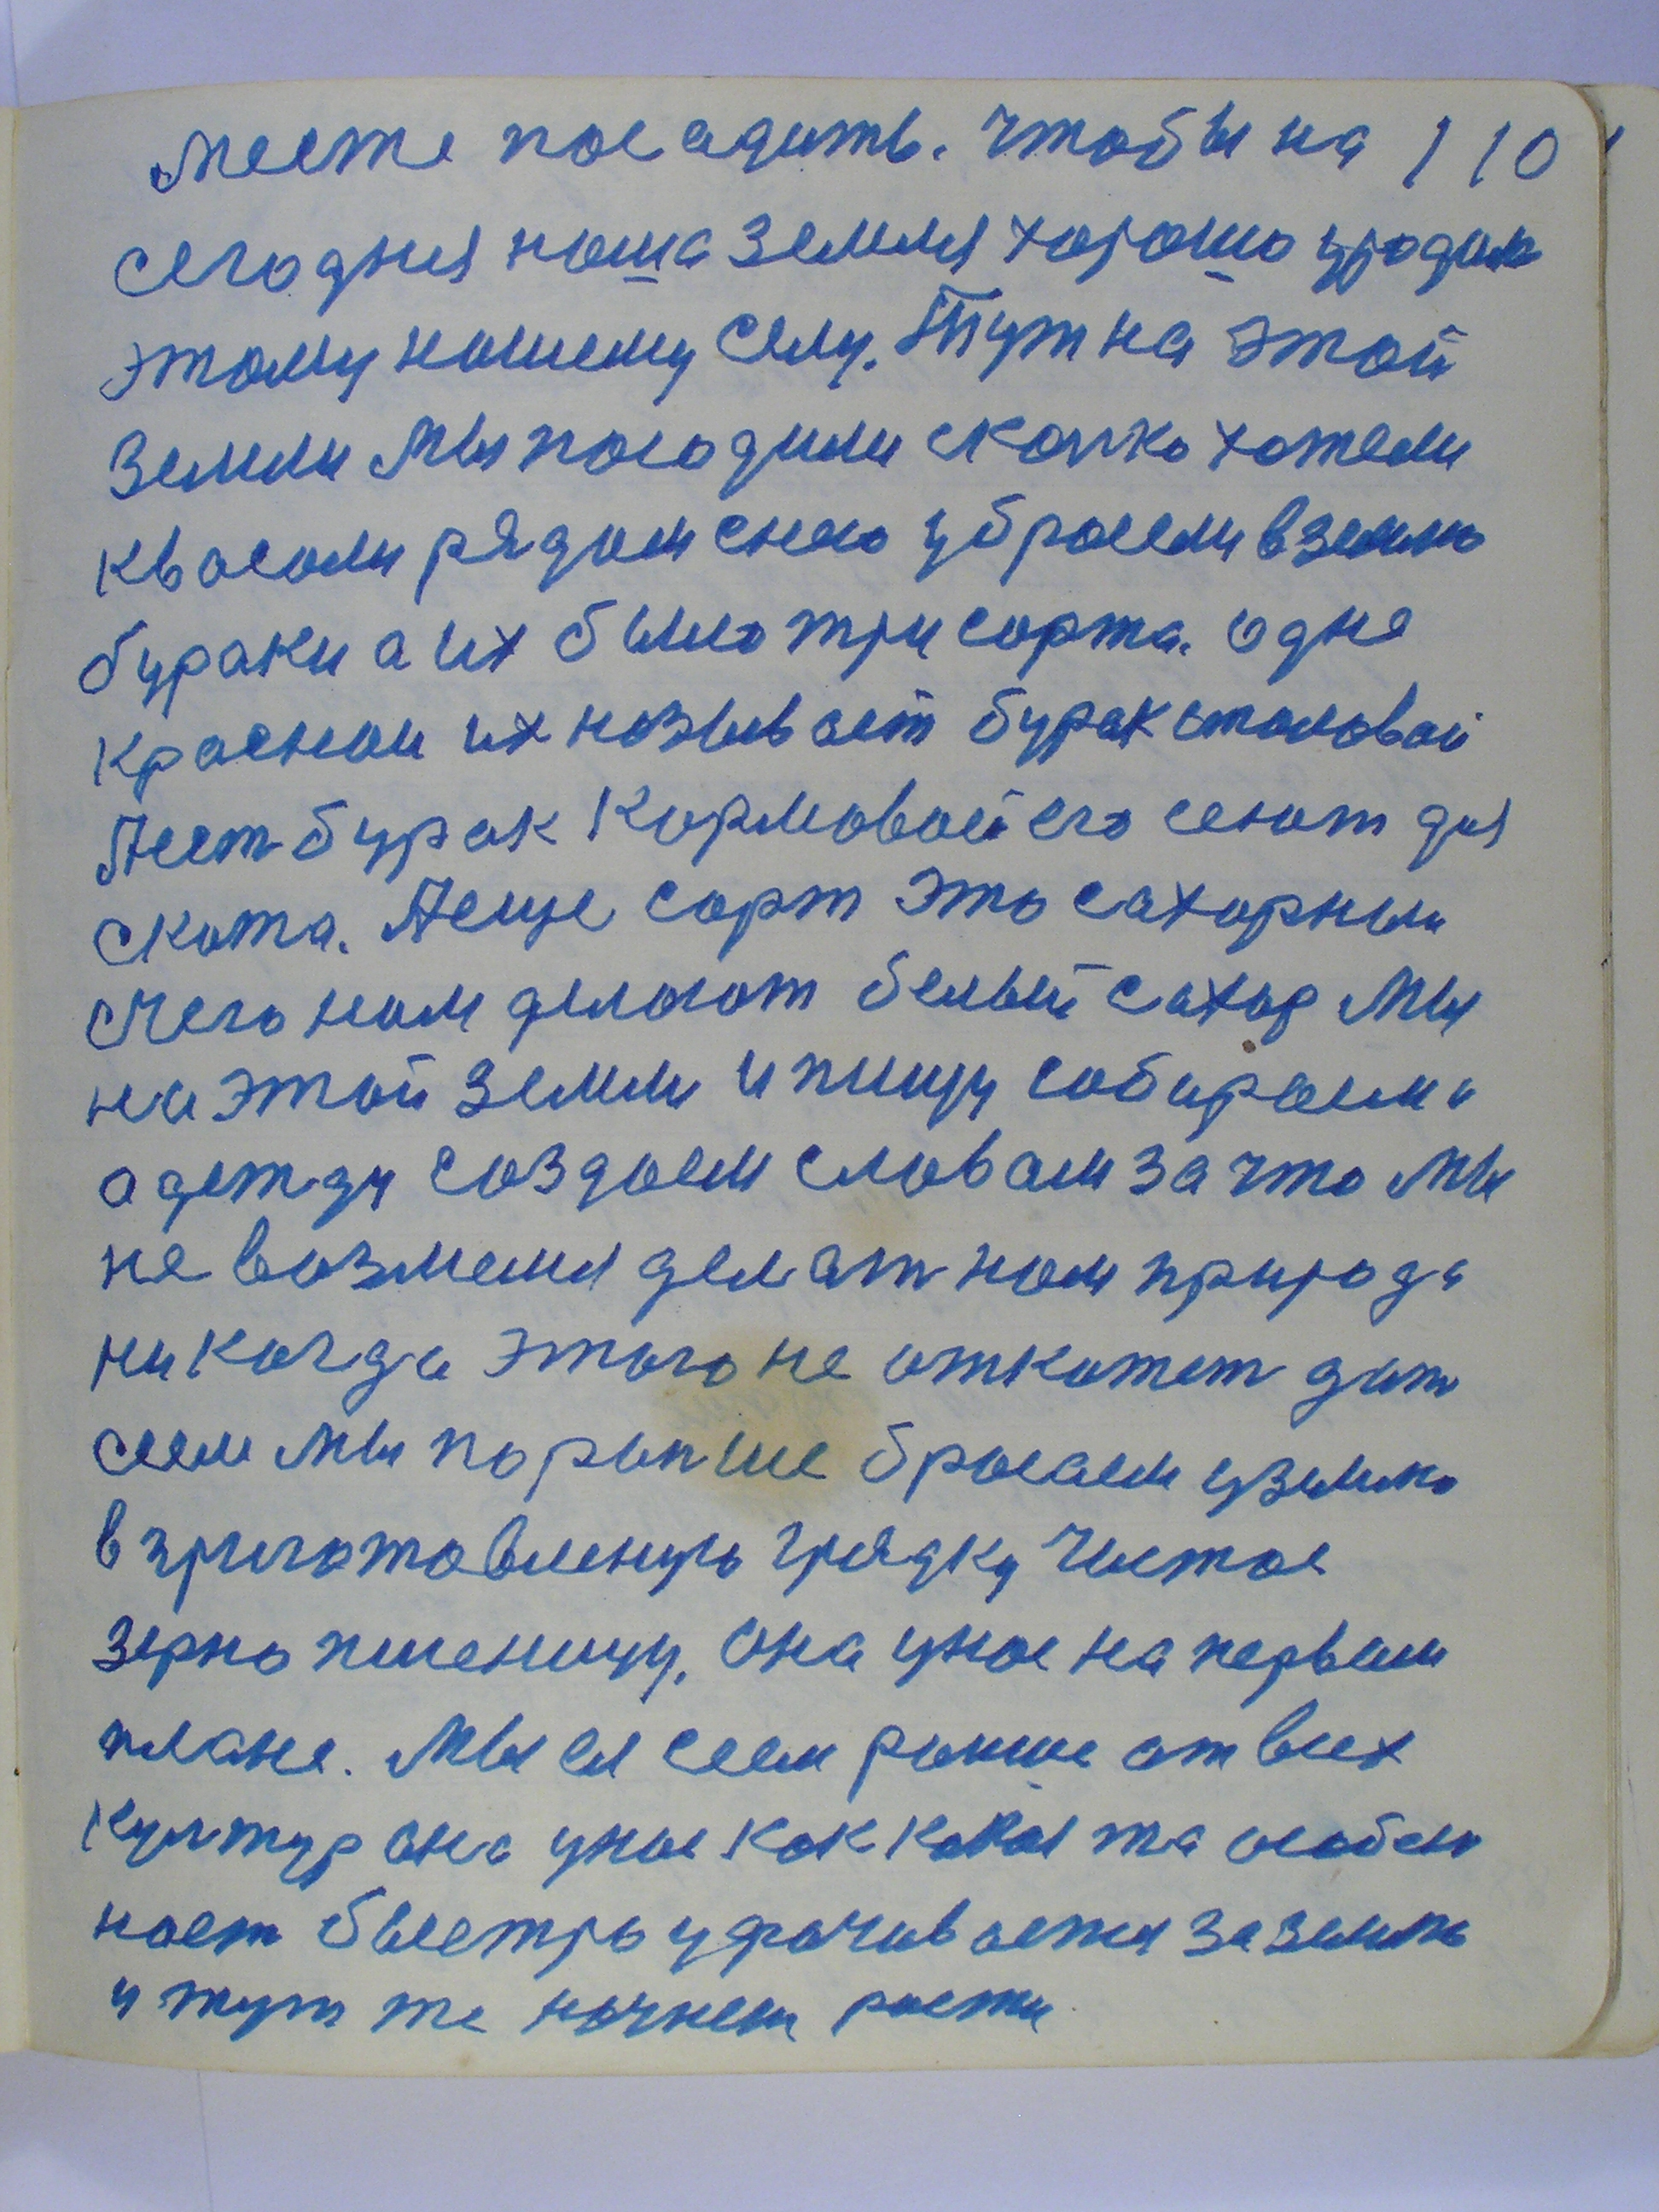 месте посадить. Чтобы на 110
сегодня наша земля хорошо уродила
этому нашему селу. Тут на этой
земли мы посодили сколко хотели
квасоли рядом снею убросели в землю
бураки а их было три сорта. одне
красной их называет бурак столовай
Аест бурак кормовой его сеют для
скота. Аеще сорт это сахорный
счего нам делают белый сахар мы
на этой земли и пищу собираем и
одежду создоем словам за что мы
не возмемся делат нам природа
никогда этого не откажет дат
сеем мы поранше бросаем уземлю
в приготовленую грядку чистое
зерно пшеницу. Она унас на первым
плане. Мы ея сеем ранше от всех
культур она унас как какая та особен
ност быстро ухрачивается за землю
и тут же начнет расти